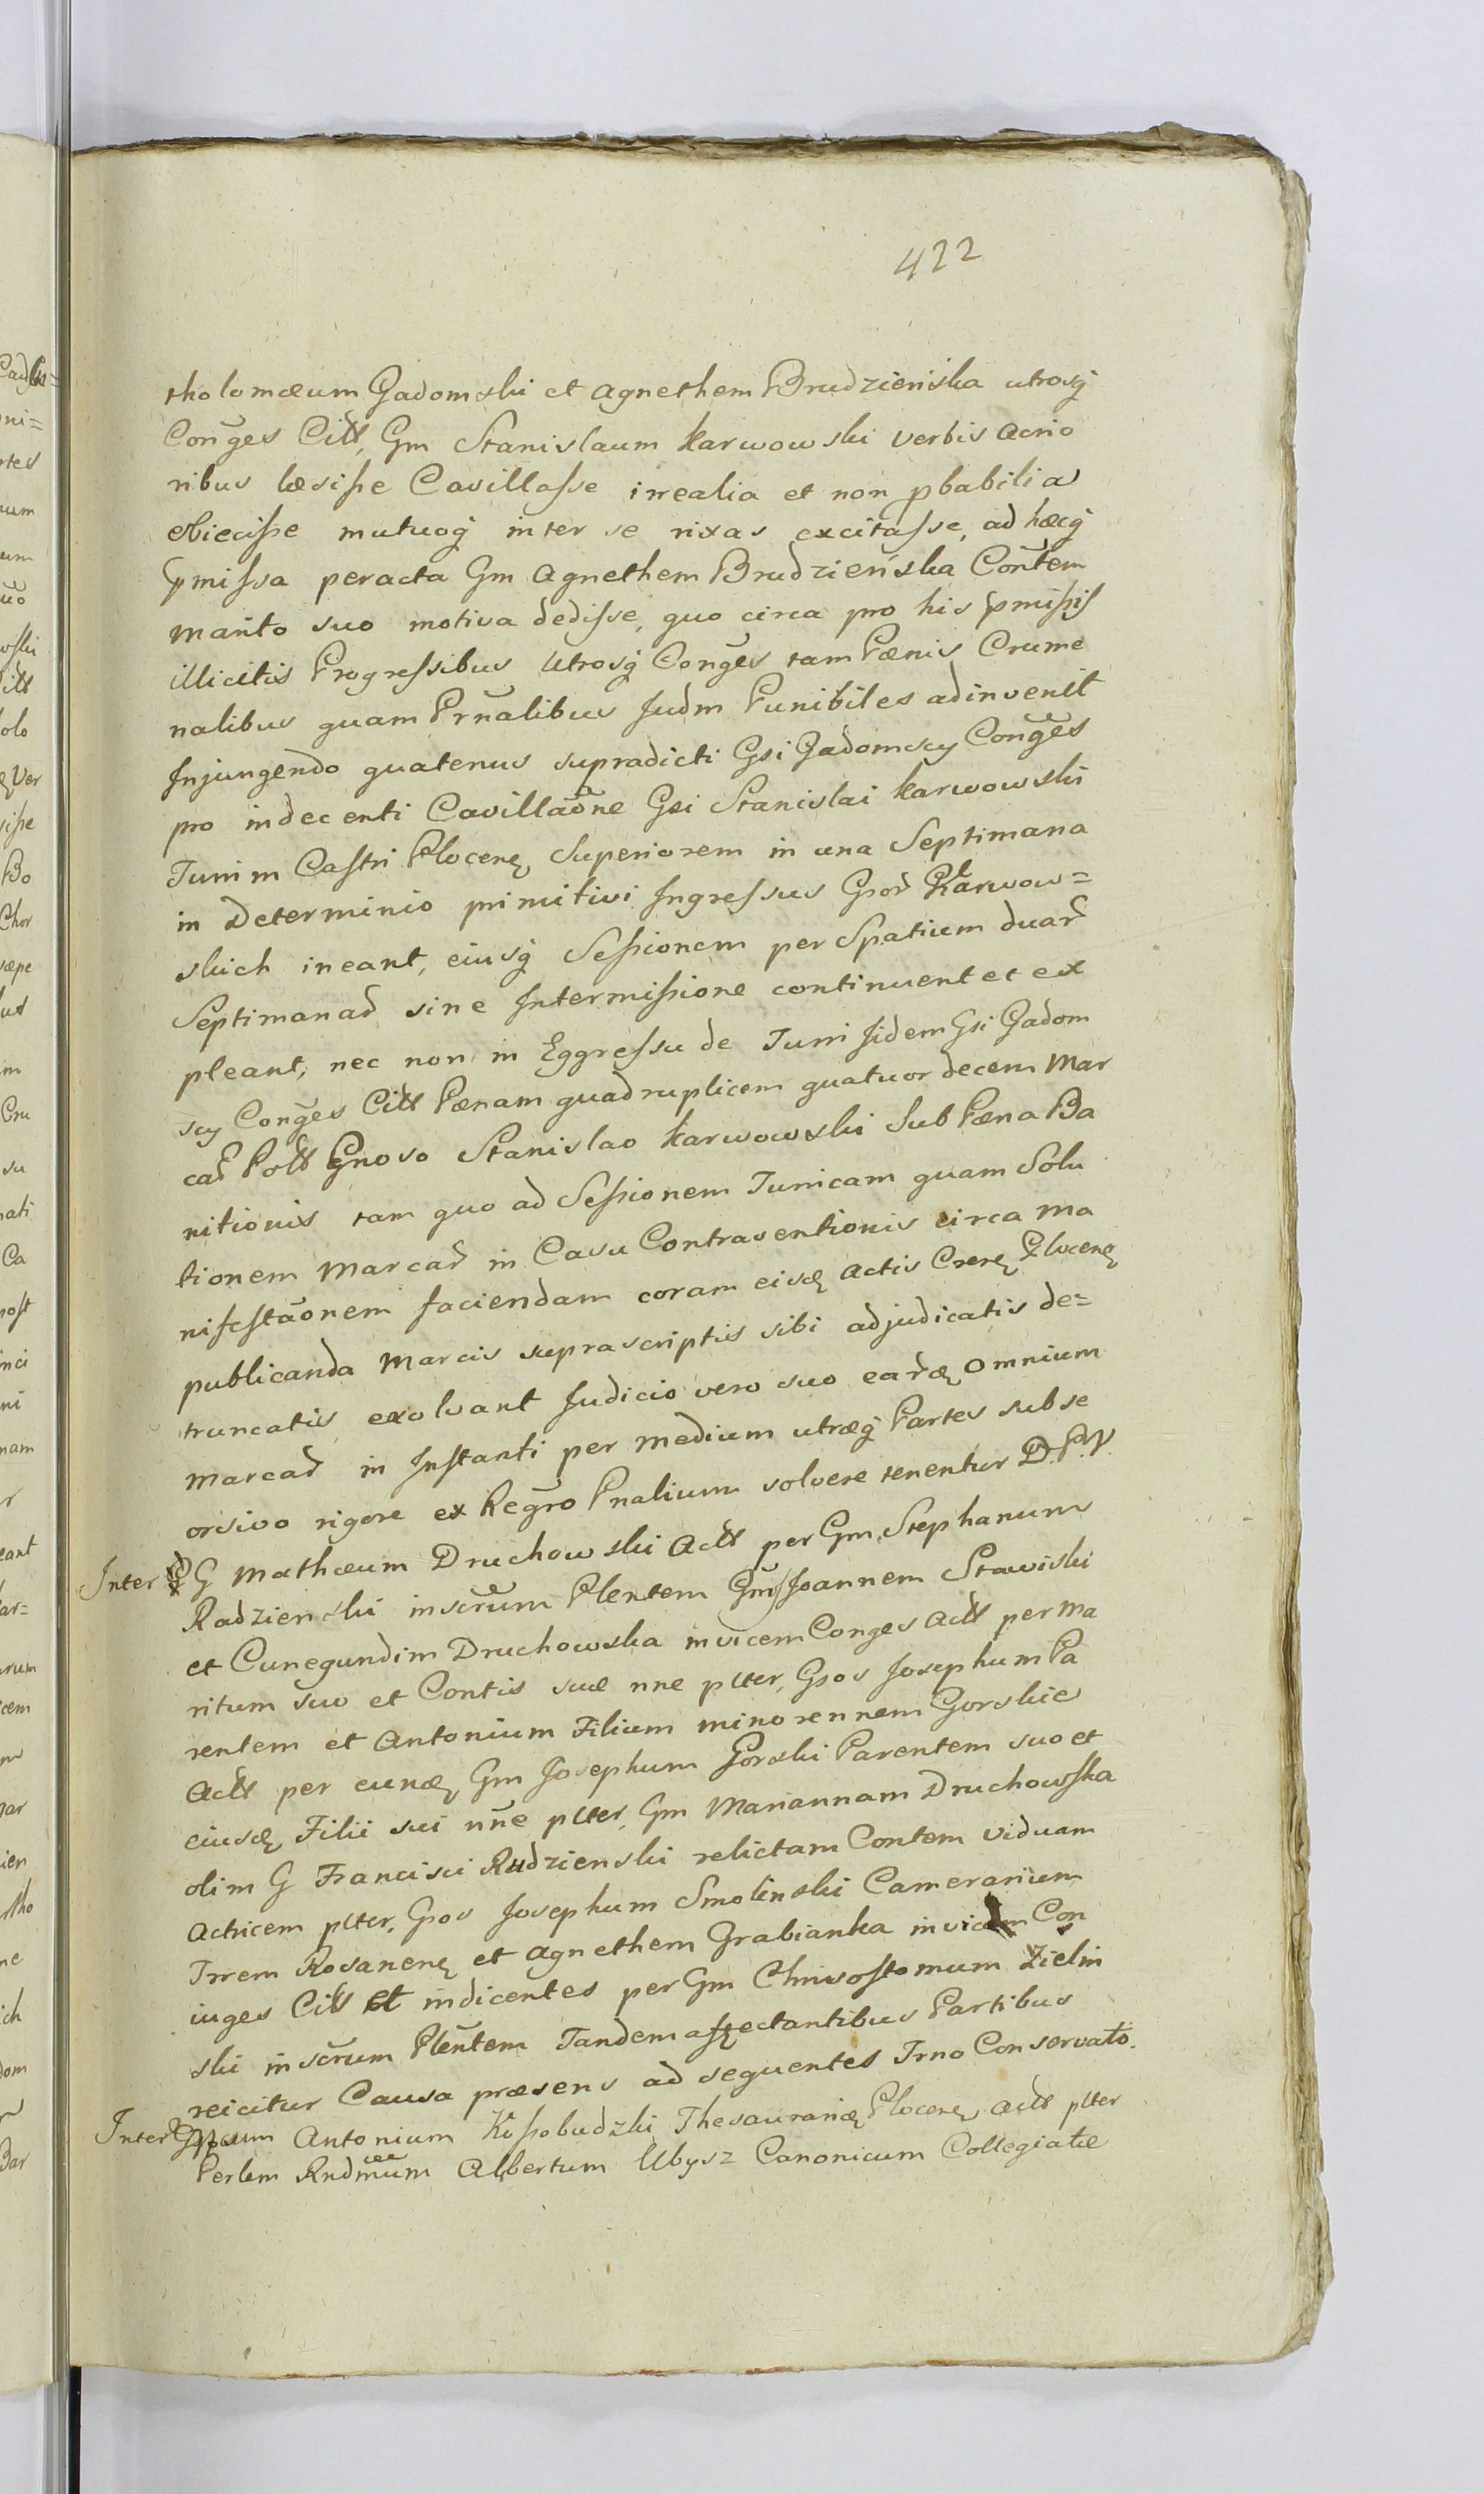 422
tholomæum Gadomski et Agnethem Brudzieńska utrosq
Coñges Citt, Gm Stanislaum Karwowski verbis acrio
ribus læsisse Cavillasse irrealia et non pbabilia
obiecisse mutuoq inter se rixas excitasse, ad hæcq
pmissa peracta Gm Agnethem Brudzieńska Coñtem
Mariito suo motiva dedisse, quo circa pro his pmissis
illicitis Progressibus Utrosq Coñges tam Pænis Crume
nalibus quam Prñalibus Judm Punibiles adinvenit
Injungendo quatenus supradicti Gsi Gadomscy Coñges
pro indecenti Cavillaõne Gsi Stanislai Karwowski
Turrim Castri Plocenę Superiorem in una Septimana
in Determinio primitivi Ingressus Gsor Karwow=
skich ineant, eiusq Sessionem per Spatium duar
Septimanar sine Intermissione continuent et ex
pleant, nec non in Eggressu de Turri Iidem Gsi Gadom
scy Coñges Citt Pænam quadruplicem quatuordecem Mar
car Poltt Gnoso Stanislao Karwowski Sub Pæna Ba
nitionis tam quo ad Sessionem Turricam quam Solu
tionem Marcar in Casu Contraventionis circa Ma
nifestaõnem faciendam coram eisdę Actis Crerę Plocenę
publicanda Marcis suprascriptis sibi adjudicatis de=
truncatis exolvant Judicio vero suo eardę Omnium
Marcar in Instanti per Medium utræq Partes sub se
orsivo rigore ex Regr̃o Pnalium solvere tenentur D. P. V.
Inter G Mathæum Druchowski Actt per Gm Stephanum
Radzienski inscr̃um Plentem Gm Joannem Stawiski
et Cunegundim Druchowska invicem Conges Actt per Ma
ritum suo et Contis suæ nne plter, Gsos Josephum Pa
rentem et Antonium Filium minorennem Gorskie
Actt per eundę Gm Josephum Gorski Parentem suo et
eiusdę Filii sui nñe plter, Gm Mariannam Druchowska
olim G Francisci Rudzienski relictam Contem Viduam
Actricem plter, Gsos Josephum Smolinski Camerarium
Trrem Rosanenę et Agnethem Grabianka invicem Con
iuges Citt et indicentes per Gm Chrisostomum Zielin
ski inscr̃um Pleñtem Tandem affectantibus Partibus
reicitur Causa præsens ad sequentes Trno Conservato.
Inter Antonium Kossobudzki Thesaurarię Plocenę Actt plter
Perlem Rndmum Albertum Ubysz Canonicum Collegiatæ